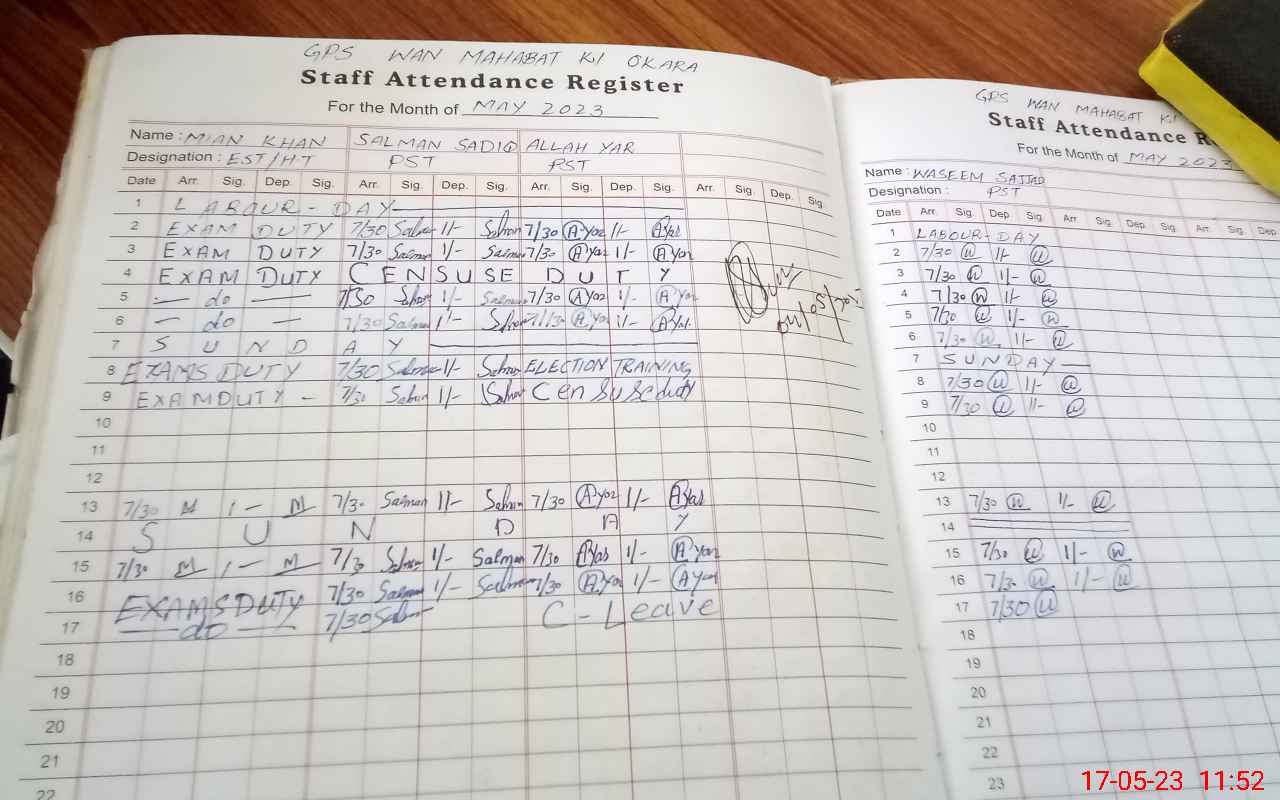 GPS WAN MAHABAT KI OKARA
Staff Attendance Register
For the Month of MAY 2023
Name : MIAN KHAN SALMAN SADIQ ALLAH YAR
Designation : EST/HT PST PST
Date Arr. Sig. Dep. Sig. Arr. Sig. Dep. Sig. Arr. Sig. Dep. Sig. Arr. Sig. Dep. Sig.
1 LABOUR-DAY
2 EXAM DUTY 7/30 Salman 1/- Salman 7/30 A.Yar 1/- A.Yar
3 EXAM DUTY 7/30 Salman 1/- Salman 7/30 A.Yar 1/- A.Yar
4 EXAM DUTY CENSUSE DUTY
5 — do — 7/30 Salman 1/- Salman 7/30 A.Yar 1/- A.Yar
6 — do — 7/30 Salman 1/- Salman 7/30 A.Yar 1/- A.Yar
7 SUNDAY
8 EXAMS DUTY 7/30 Salman 1/- Salman ELECTION TRAINING
9 EXAMDUTY - 7/30 Salman 1/- Salman Censuseduty
10
11
12
13 7/30 M 1- M 7/30 Salman 1/- Salman 7/30 A.Yar 1/- A.Yar
14 SUNDAY
15 7/30 M 1- M 7/30 Salman 1/- Salman 7/30 A.Yar 1/- A.Yar
16 EXAMSDUTY 7/30 Salman 1/- Salman 7/30 A.Yar 1/- A.Yar
17 — do — 7/30 Salman C-Leave
18
19
20
21
22
GPS WAN MAHABAT KI
Staff Attendance R
For the Month of MAY 2023
Name : WASEEM SAJJAD
Designation : PST
Date Arr. Sig. Dep. Sig. Arr. Sig. Dep. Sig. Arr. Sig. Dep
1 LABOUR-DAY
2 7/30 W 1/- W
3 7/30 W 1/- W
4 7/30 W 1/- W
5 7/30 W 1/- W
6 7/30 W 1/- W
7 SUNDAY
8 7/30 W 1/- W
9 7/30 W 1/- W
10
11
12
13 7/30 W 1/- W
14
15 7/30 W 1/- W
16 7/30 W 1/- W
17 7/30 W
18
19
20
21
22
23
17-05-23 11:52